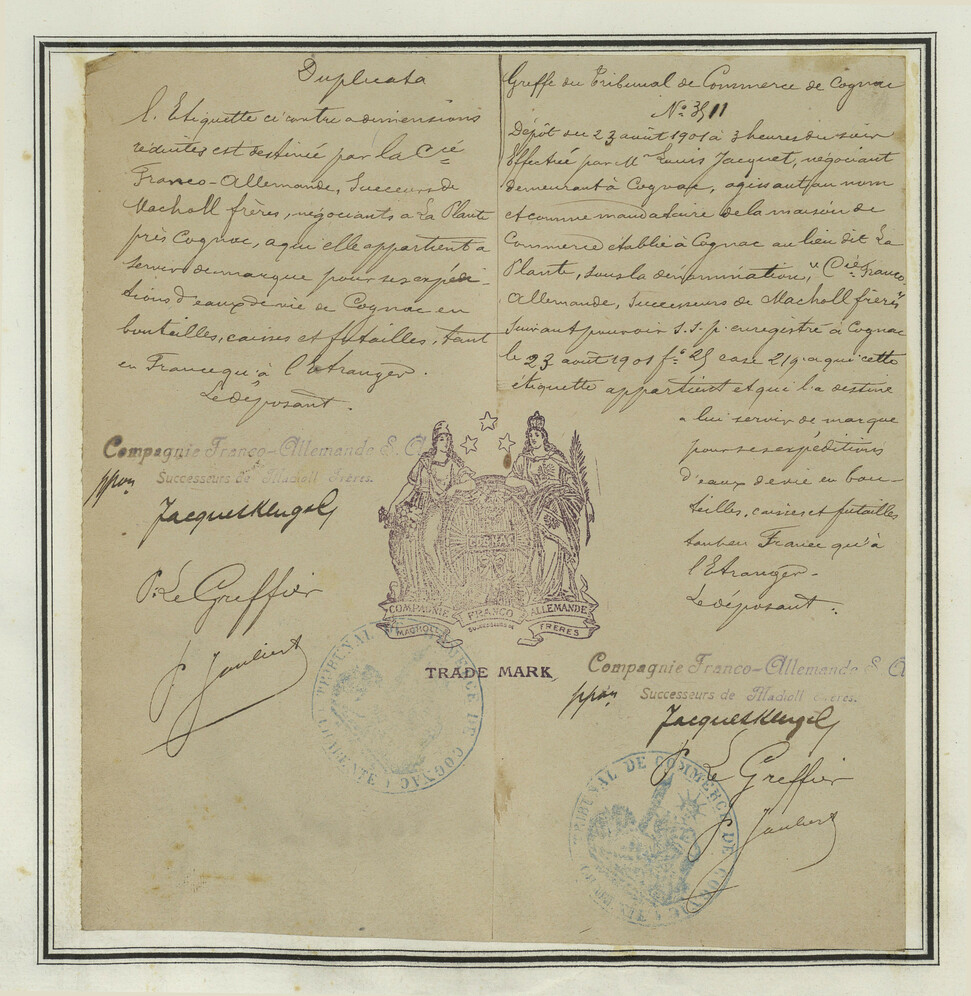 Duplicata
L'Etiquette ci contre a dimensions
réduites est destinée par la Cie
Franco-Allemande, Successeurs de
Macholl frères, négociants a La Plante
près Cognac, a qui elle appartient a
servir de marque pour ses expédi-
tions d'eaux de vie de Cognac en
bouteilles, caisses et futailles, tant
en France qu'à l'Etranger.
Le déposant.
Compagnie Franco-Allemande S. A
Successeurs de Macholl Frères.
ppon
Jacques Kengel
P. Le Greffier
J. Joubert
Greffe du Tribunal de Commerce de Cognac
No 3511
Dépôt du 23 août 1901 à 3 heures du soir
Effectué par Mr Louis Jacquet, négociant
demeurant à Cognac, agissant au nom
et comme mandataire de la maison de
Commerce établie à Cognac au lieu dit La
Plante, sous la dénomination, "Cie Franco
Allemande, Successeurs de Macholl frères"
suivant pouvoir s.s.p. enregistré à Cognac
le 23 août 1901 fo 25 case 219 a qui cette
étiquette appartient et qui l'a destine
a lui servir de marque
pour ses expéditions
d'eaux de vie en bou-
teilles, caisses et futailles
tant en France qu'à
l'Etranger.
Le déposant.
COGNAC
COMPAGNIE FRANCO ALLEMANDE
MACHOLL SUCCESSEURS DE FRERES
TRADE MARK
TRIBUNAL DE COMMERCE DE COGNAC
CHARENTE
Compagnie Franco-Allemande S. A
Successeurs de Macholl Frères.
ppon
Jacques Kengel
P. Le Greffier
J. Joubert
TRIBUNAL DE COMMERCE DE COGNAC
CHARENTE